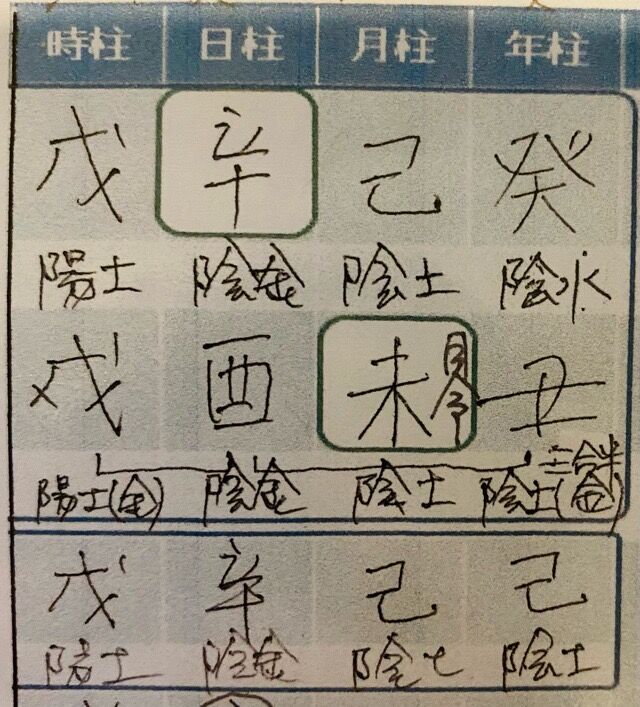 時柱 日柱 月柱 年柱
戊 辛 己 癸
陽土 陰金 陰土 陰水
戌 酉 未 月令 丑
三合半
陽土(金) 陰金 陰土 陰土(金)
戊 辛 己 己
陽土 陰金 陰土 陰土